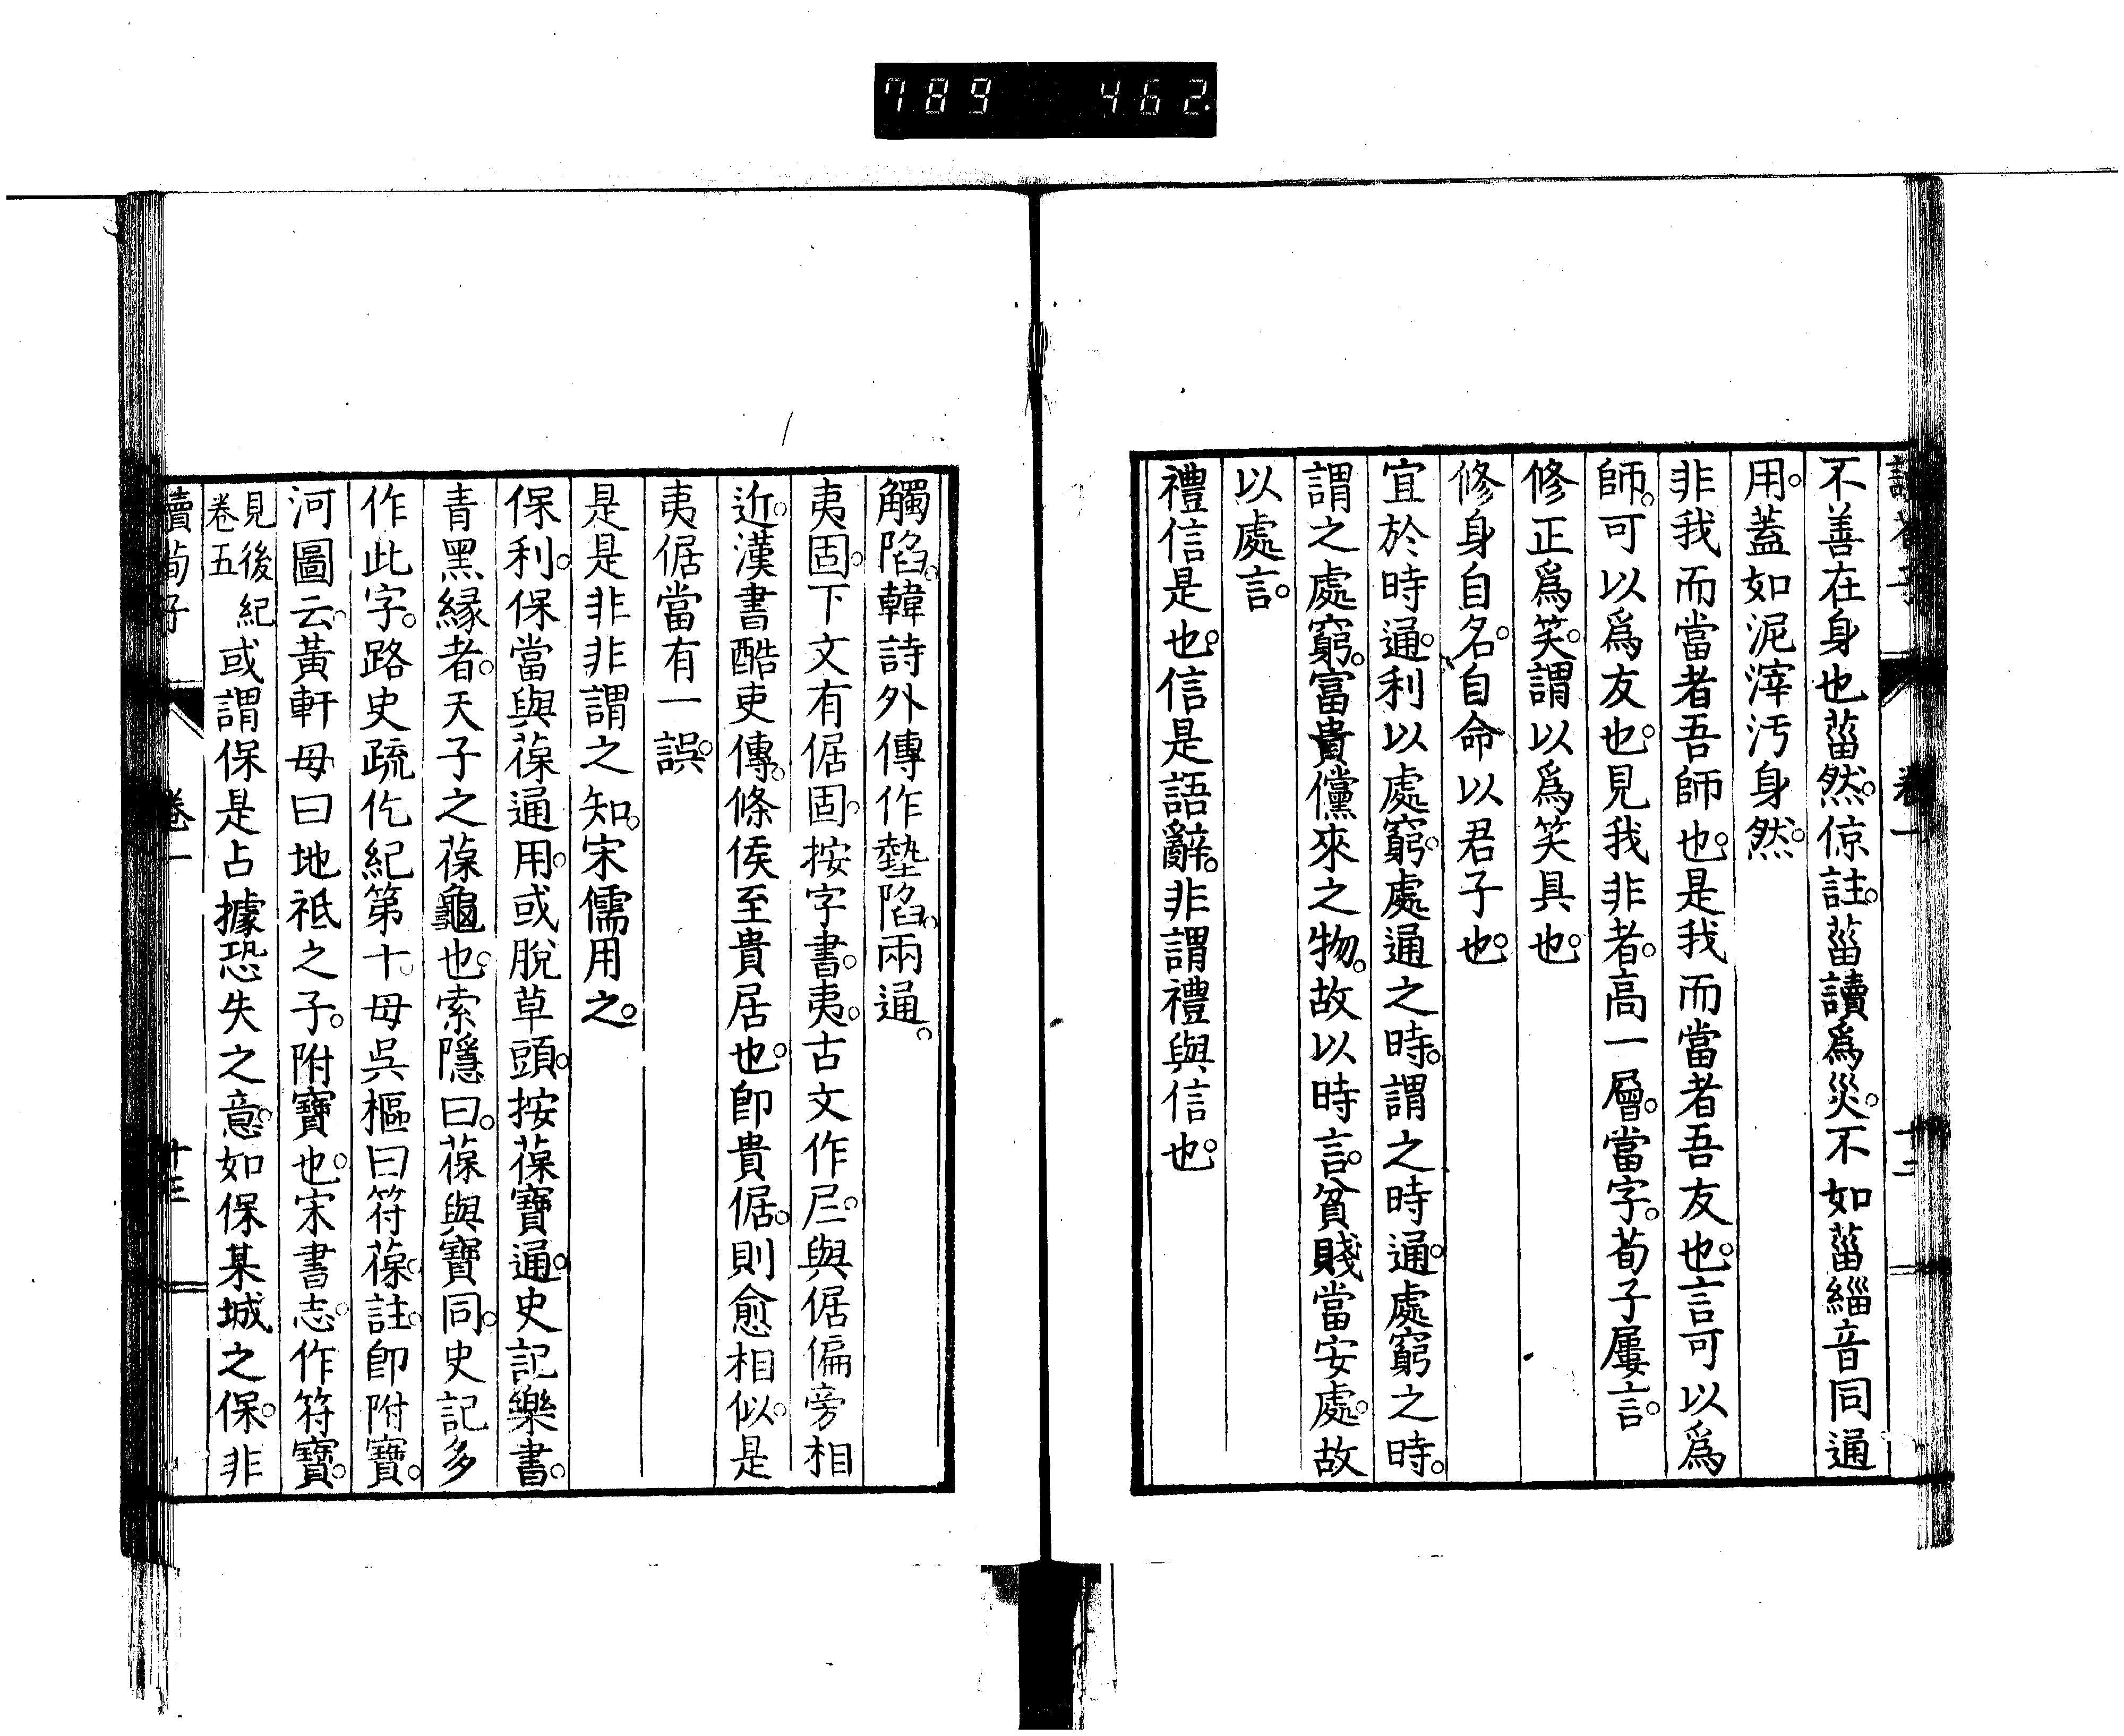 789 462
讀荀子 卷一 十二
不善在身也菑然。倞註。菑讀爲災。不如菑緇音同通
用。蓋如泥滓汚身然。
非我而當者吾師也。是我而當者吾友也。言可以爲
師。可以爲友也。見我非者。高一層。當字。荀子屢言。
修正爲笑。謂以爲笑具也。
修身自名。自命以君子也。
宜於時通。利以處窮。處通之時。謂之時通。處窮之時。
謂之處窮。富貴儻來之物。故以時言。貧賤當安處。故
以處言。
禮信是也。信是語辭。非謂禮與信也。
觸陷。韓詩外傳作墊陷。兩通。
夷固。下文有倨固。按字書。夷。古文作𡰥。與倨偏旁相
近。漢書酷吏傳。條侯至貴居也。卽貴倨。則愈相似。是
夷倨當有一誤。
是是非非謂之知。宋儒用之。
保利。保當與葆通用。或脫草頭。按葆寶通。史記樂書。
青黑緣者。天子之葆龜也。索隱曰。葆與寶同。史記多
作此字。路史疏仡紀第十。母吳樞曰符葆。註。卽附寶。
河圖云。黃軒母曰地祗之子。附寶也。宋書志。作符寶。
見後紀卷五或謂保是占據恐失之意。如保某城之保。非
讀荀子 卷一 十三